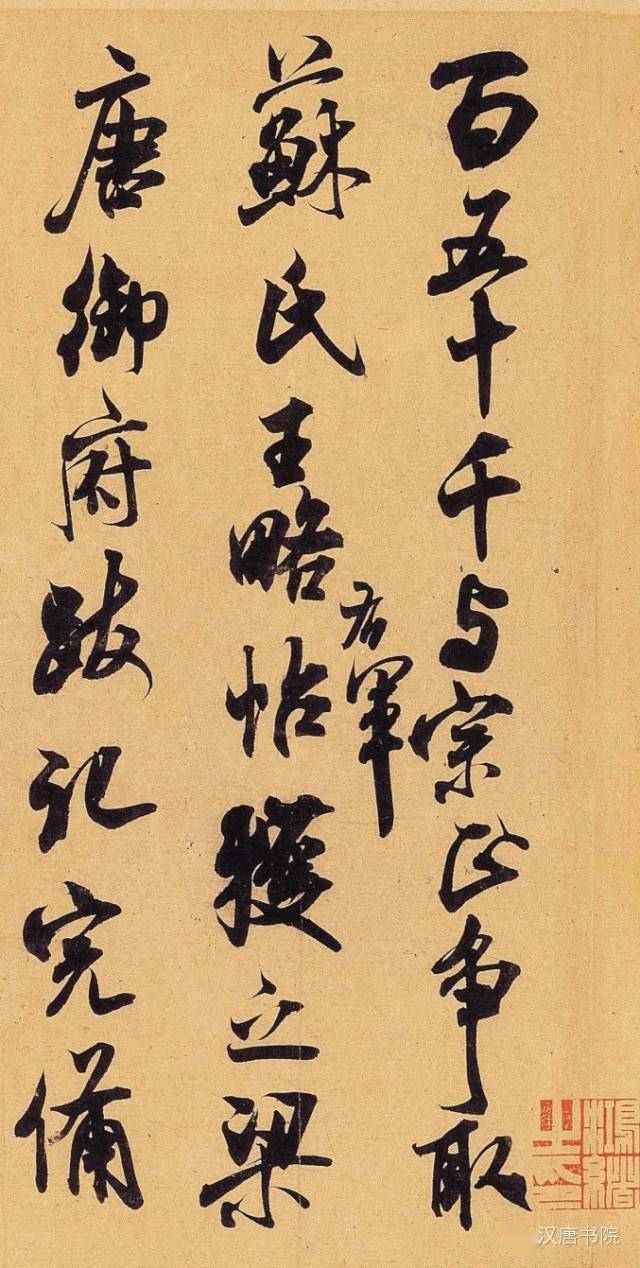 百五十千与宗正争取
蘇氏王略帖獲之梁
右軍
唐御府跋記完備
汉唐书院